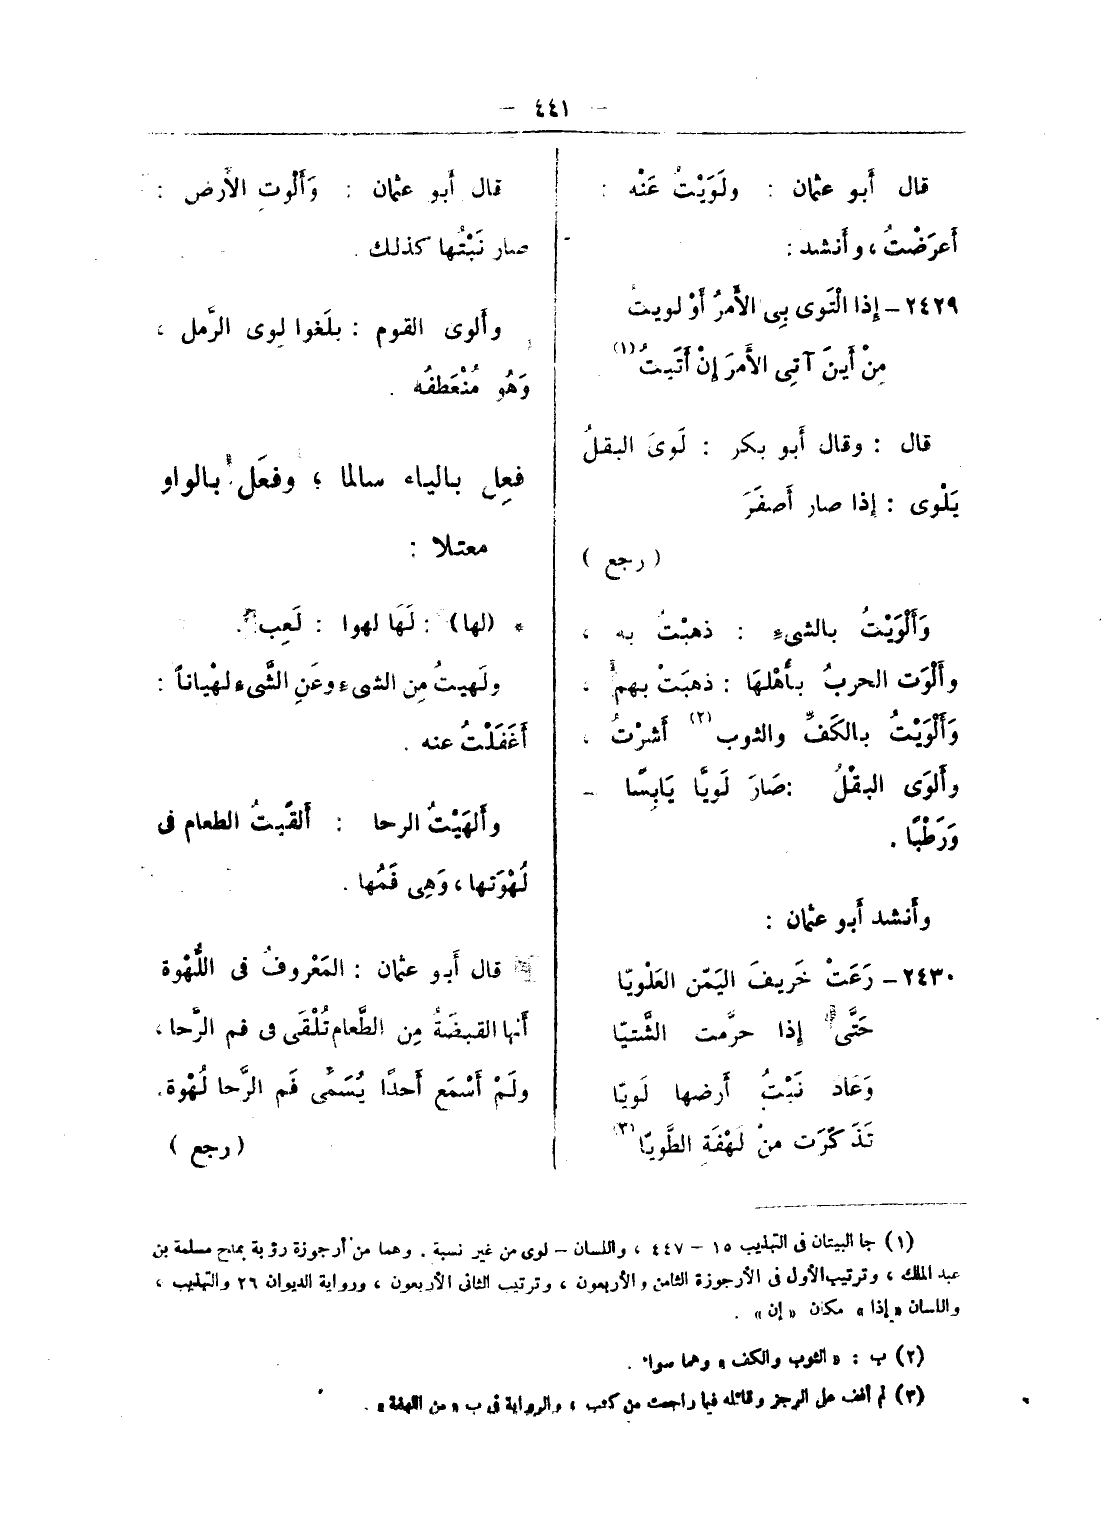 — ٤٤١ —
قال أَبو عثمان : ولَوَيْتُ عَنْه :
أَعرَضْتُ ، وأَنشد :
٢٤٢٩ – إِذا الْتَوى بِى الأَمرُ أَوْ لويتُ
مِنْ أَينَ آتِى الأَمرَ إِنْ أَتَيتُ (١)
قال : وقال أَبو بكر : لَوىَ البقلُ
يَلْوى : إِذا صار أَصفَرَ
( رجع )
وَأَلْوَيْتُ بالشىءِ : ذهبْتُ به ،
وأَلْوَت الحربُ بأَهْلهَا : ذهبَتْ بهم ،
وَأَلْوَيْتُ بالكَفِّ والثوب (٢) أَشرْتُ ،
وأَلوَى البقْلُ : صَارَ لَويًّا يَابِسًا –
وَرَطْبًا .
وأَنشد أَبو عثمان :
٢٤٣٠ – رَعَتْ خَريفَ اليَمَن العَلْويّا
حَتَّى إِذا حرَّمت الشَّتيّا
وَعَادَ نَبْتُ أَرضها لَويّا
تَذَكَّرَت منْ لَهْفَةِ الطَّويّا (٣)
قال أَبو عثمان : وَأَلْوتِ الأَرض :
صار نَبْتُها كذلك .
وأَلوى القوم : بلَغوا لِوى الرَّمل ،
وَهُو مُنْعَطفُه .
فعِل بالياء سالما ، وفعَل بالواو
معتلا :
* (لها) : لَهَا لهوا : لَعِب .
ولَهيتُ مِن الشىءِ وعَنِ الشَّىءِ لهْياناً :
أَغَفَلْتُ عنه .
وأَلهَيْتُ الرحا : أَلقَيتُ الطعام فى
لُهْوَتها ، وَهِى فَمُها .
قال أَبو عثمان : المَعْروفُ فى اللُّهْوة
أَنها القبضَةُ مِن الطَّعام تُلْقَى فى فم الرَّحا ،
ولَمْ أَسْمَع أَحدًا يُسَمِّى فَم الرَّحا لُهْوة .
( رجع )
(١) جا البيتان فى التهذيب ١٥ – ٤٤٧ ، واللسان – لوى من غير نسبة . وهما من أرجوزة رؤبة يمدح مسلمة بن
عبد الملك ، وترتيب الأول فى الأرجوزة الثامن والأربعون ، وترتيب الثانى الأربعون ، ورواية الديوان ٢٦ والتهذيب ،
واللسان « إذا » مكان « إن » .
(٢) ب : « الثوب والكف » وهما سوا .
(٣) لم أقف على الرجز وقائله فيما راجعت من كتب ، والرواية فى ب « من اللهفة » .